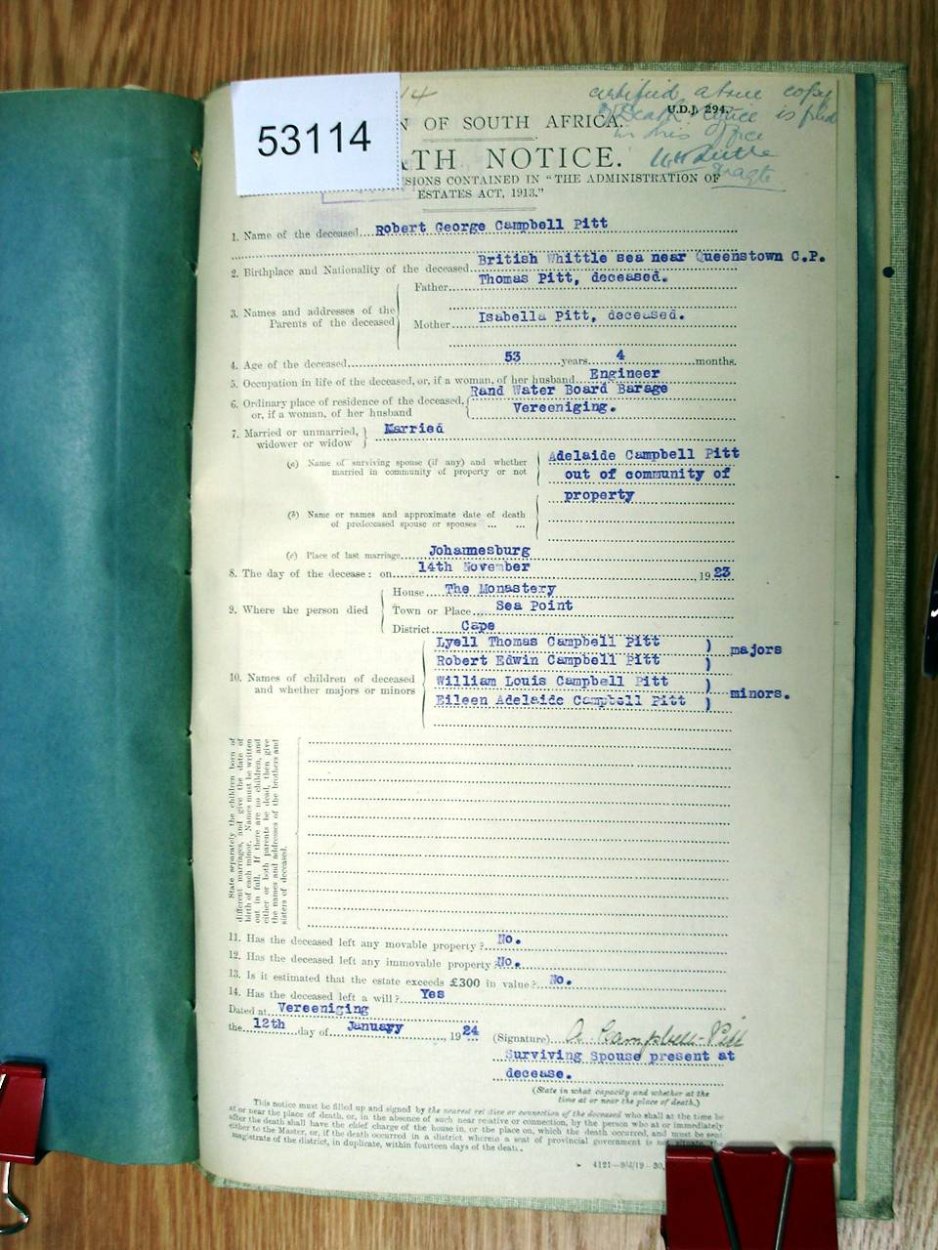 53114
14
certified a true copy
of Death Notice is filed
in this office
U.D.J. 294.
N OF SOUTH AFRICA.
ATH NOTICE.
SIONS CONTAINED IN "THE ADMINISTRATION OF
ESTATES ACT, 1913."
1. Name of the deceased Robert George Campbell Pitt
2. Birthplace and Nationality of the deceased British Whittle sea near Queenstown C.P.
3. Names and addresses of the Parents of the deceased
Father Thomas Pitt, deceased.
Mother Isabella Pitt, deceased.
4. Age of the deceased 53 years 4 months.
5. Occupation in life of the deceased, or, if a woman, of her husband Engineer
6. Ordinary place of residence of the deceased, Rand Water Board Barage
or, if a woman, of her husband Vereeniging.
7. Married or unmarried, widower or widow Married
(a) Name of surviving spouse (if any) and whether married in community of property or not
Adelaide Campbell Pitt
out of community of
property
(b) Name or names and approximate date of death
of predeceased spouse or spouses ... ...
(c) Place of last marriage Johannesburg
8. The day of the decease: on 14th November 1923
9. Where the person died
House The Monastery
Town or Place Sea Point
District Cape
10. Names of children of deceased
and whether majors or minors
Lyell Thomas Campbell Pitt )
Robert Edwin Campbell Pitt ) majors
William Louis Campbell Pitt )
Eileen Adelaide Campbell Pitt ) minors.
State separately the children born of
different marriages, and give the date of
birth of each minor. Names must be written
out in full. If there are no children, and
either or both parents be dead, then give
the names and addresses of the brothers and
sisters of deceased.
11. Has the deceased left any movable property? No.
12. Has the deceased left any immovable property? No.
13. Is it estimated that the estate exceeds £300 in value? No.
14. Has the deceased left a will? Yes
Dated at Vereeniging
the 12th day of January 1924
(Signature) A Campbell-Pitt
Surviving Spouse present at
decease.
(State in what capacity and whether at the
time at or near the place of death.)
This notice must be filled up and signed by the nearest relative or connection of the deceased who shall at the time be
at or near the place of death, or, in the absence of such near relative or connection, by the person who at or immediately
after the death shall have the chief charge of the house in, or the place on, which the death occurred, and must be sent
either to the Master, or, if the death occurred in a district wherein a seat of provincial government is not situate, the
magistrate of the district, in duplicate, within fourteen days of the death.
4121—9/4/19—30,